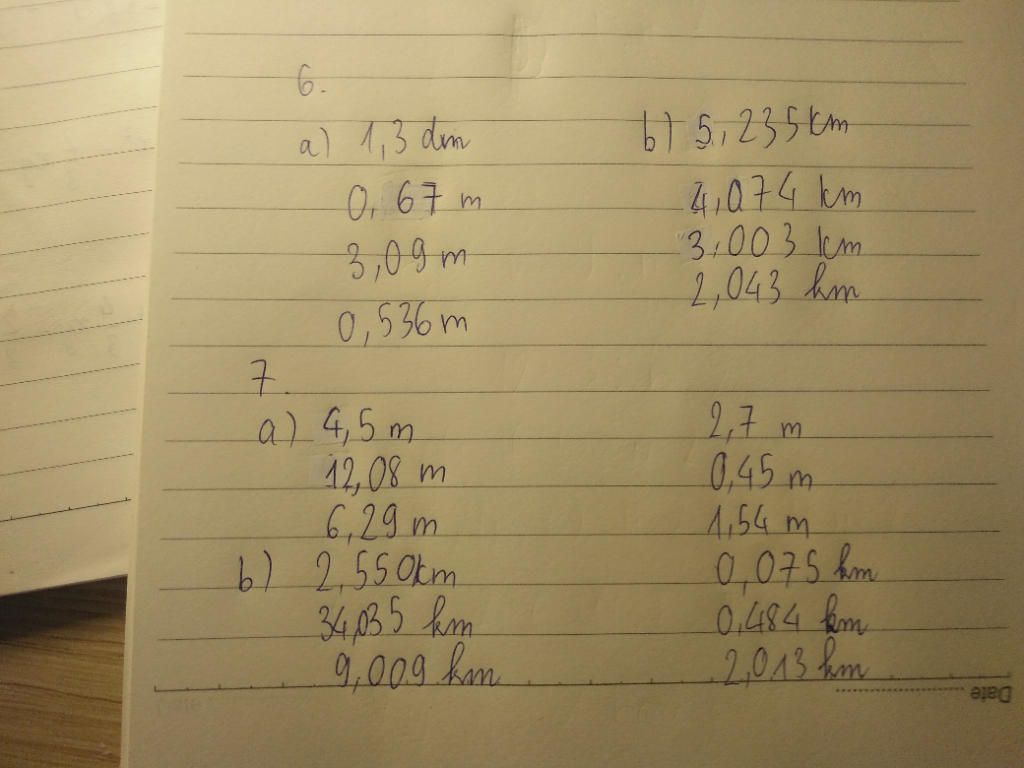 6.
a) 1,3 dm b) 5,235 km
0,67 m 4,074 km
3,09 m 3,003 km
0,536 m 2,043 km
7.
a) 4,5 m 2,7 m
12,08 m 0,45 m
6,29 m 1,54 m
b) 2,550km 0,075 km
34,035 km 0,484 km
9,009 km 2,013 km
Date